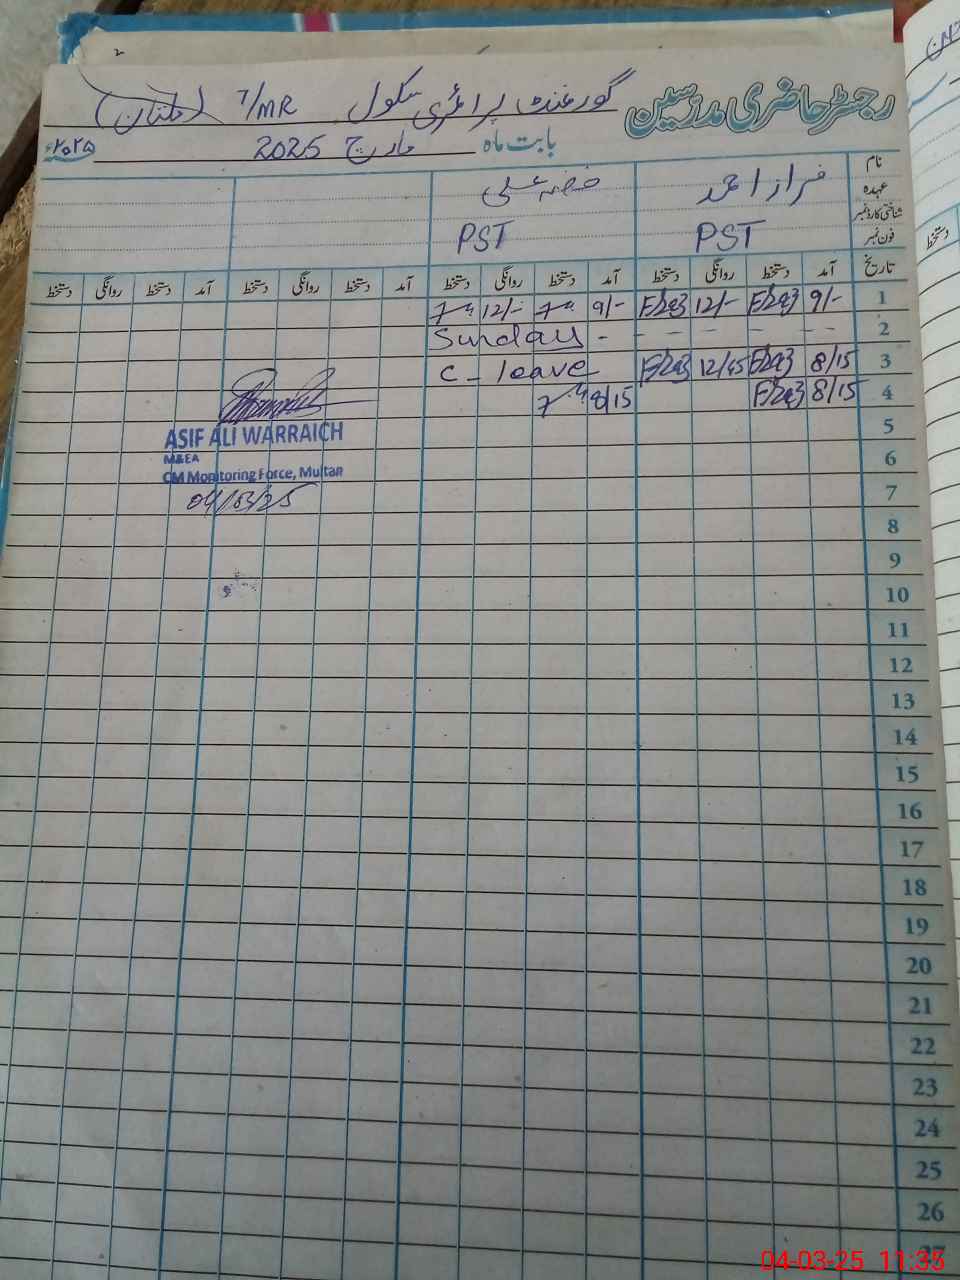 رجسٹر حاضری مدرسین گورنمنٹ پرائمری سکول 7/MR (ملتان)
بابت ماہ مارچ 2025 ۲۰۲۵ء
نام فراز احمد خضر علی
عہدہ
شناختی کارڈ نمبر PST PST
فون نمبر
تاریخ آمد دستخط روانگی دستخط آمد دستخط روانگی دستخط آمد دستخط روانگی دستخط آمد دستخط روانگی دستخط
1 9/- Fraz 12/- Fraz 9/- 12/-
2 - - - - Sunday -
3 8/15 Fraz 12/45 Fraz C - leave
4 8/15 Fraz 8/15
5
ASIF ALI WARRAICH
M&EA
6
CM Monitoring Force, Multan
7
04/03/25
8
9
10
11
12
13
14
15
16
17
18
19
20
21
22
23
24
25
26
27
04-03-25 11:35